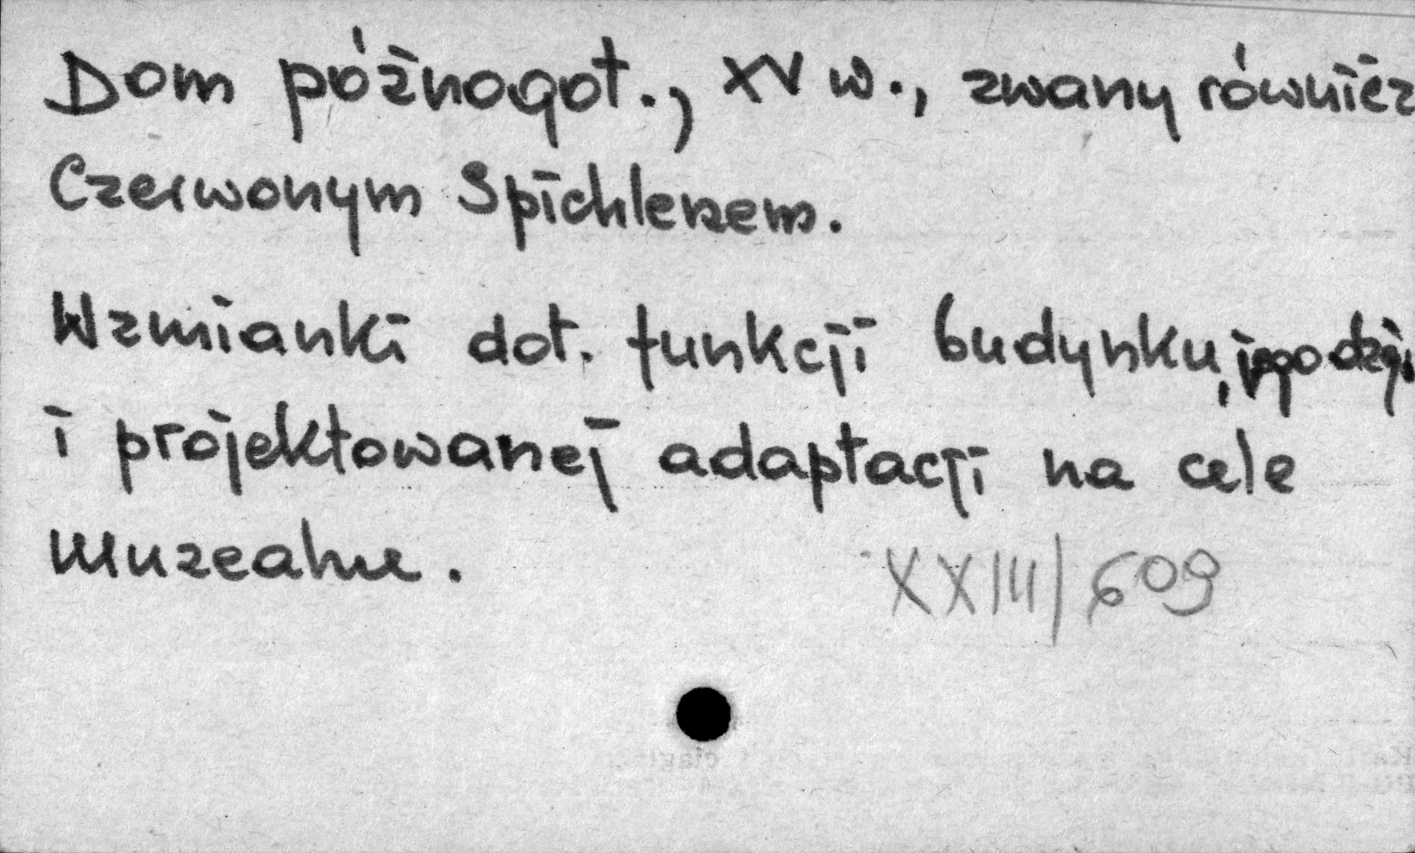 Dom późnogot., XV w., zwany również
Czerwonym Spichlerzem.
Wzmianki dot. funkcji budynku, jego
i projektowanej adaptacji na cele
muzealne.
XXIII/609